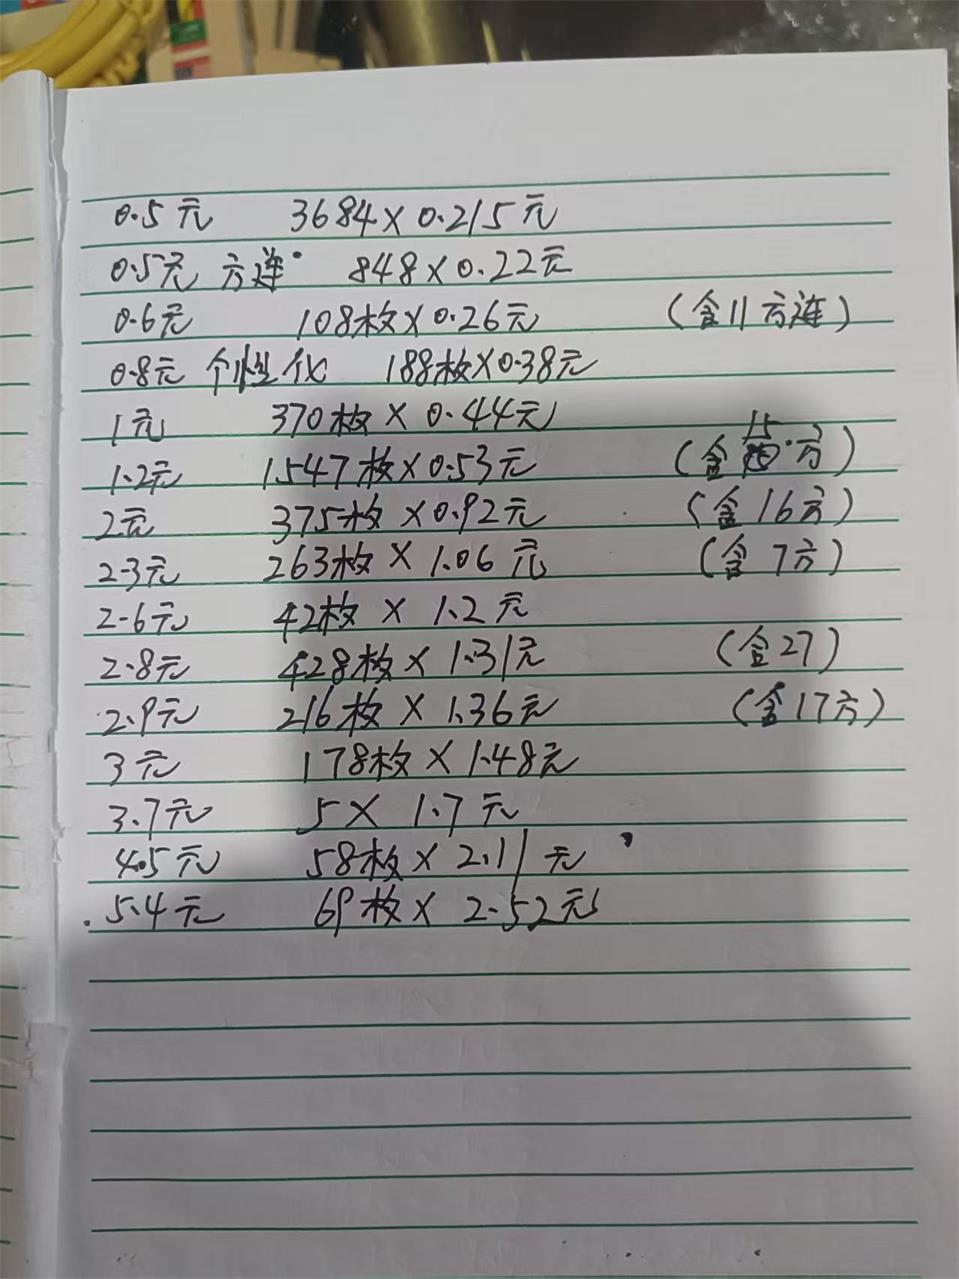 0.5元 3684×0.215元
0.5元 方连 848×0.22元
0.6元 108枚×0.26元 (含11方连)
0.8元 个性化 188枚×0.38元
1元 370枚×0.44元
1.2元 1547枚×0.53元 (含15方)
2元 375枚×0.92元 (含16方)
2.3元 263枚×1.06元 (含7方)
2.6元 42枚×1.2元
2.8元 428枚×1.31元 (含27)
2.9元 216枚×1.36元 (含17方)
3元 178枚×1.48元
3.7元 5×1.7元
4.5元 58枚×2.11元
5.4元 69枚×2.52元